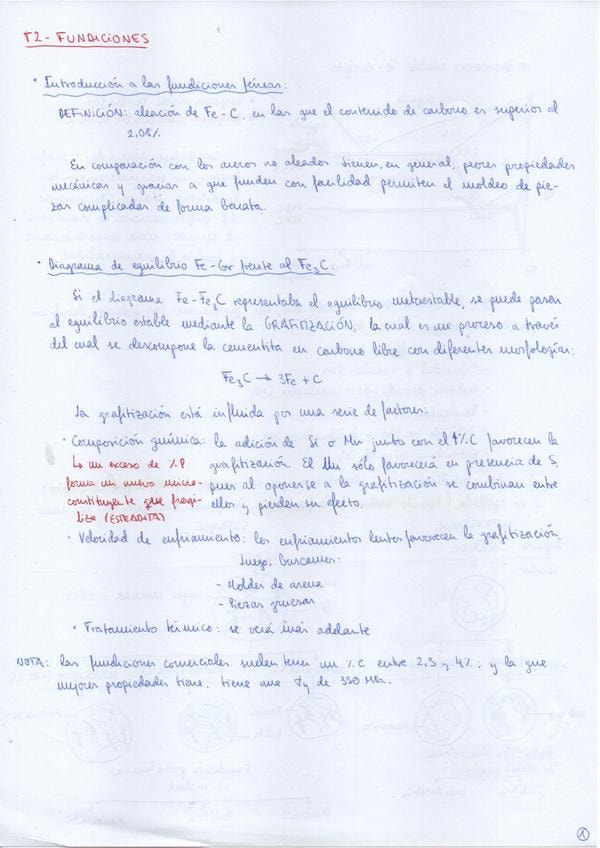 T2 - FUNDICIONES
· Introducción a las fundiciones férreas:
DEFINICIÓN: aleación de Fe-C, en las que el contenido de carbono es superior al
2,08%
En comparación con los aceros no aleados tienen, en general, peores propiedades
mecánicas y gracias a que funden con facilidad permiten el moldeo de pie-
zas complicadas de forma barata.
· Diagrama de equilibrio Fe-Gr frente al Fe₃C:
Si el diagrama Fe-Fe₃C representaba el equilibrio metaestable, se puede pasar
al equilibrio estable mediante la GRAFITIZACIÓN, la cual es un proceso a través
del cual se descompone la cementita en carbono libre con diferentes morfologías:
Fe₃C → 3Fe + C
La grafitización está influida por una serie de factores:
· Composición química: la adición de Si o Mn junto con el 4% C favorecen la
grafitización. El Mn sólo favorecerá en presencia de S,
pues al oponerse a la grafitización se combinan entre
ellos y pierden su efecto.
↳ un exceso de %P
forma un nuevo micro-
constituyente que fragi-
liza (ESTEADITA)
· Velocidad de enfriamiento: los enfriamientos lentos favorecen la grafitización.
Luego, buscamos:
- Moldes de arena
- Piezas gruesas
· Tratamiento térmico: se verá más adelante
NOTA: las fundiciones comerciales suelen tener un %C entre 2,5 y 4%; y la que
mejores propiedades tiene, tiene una de 350 MPa.
1